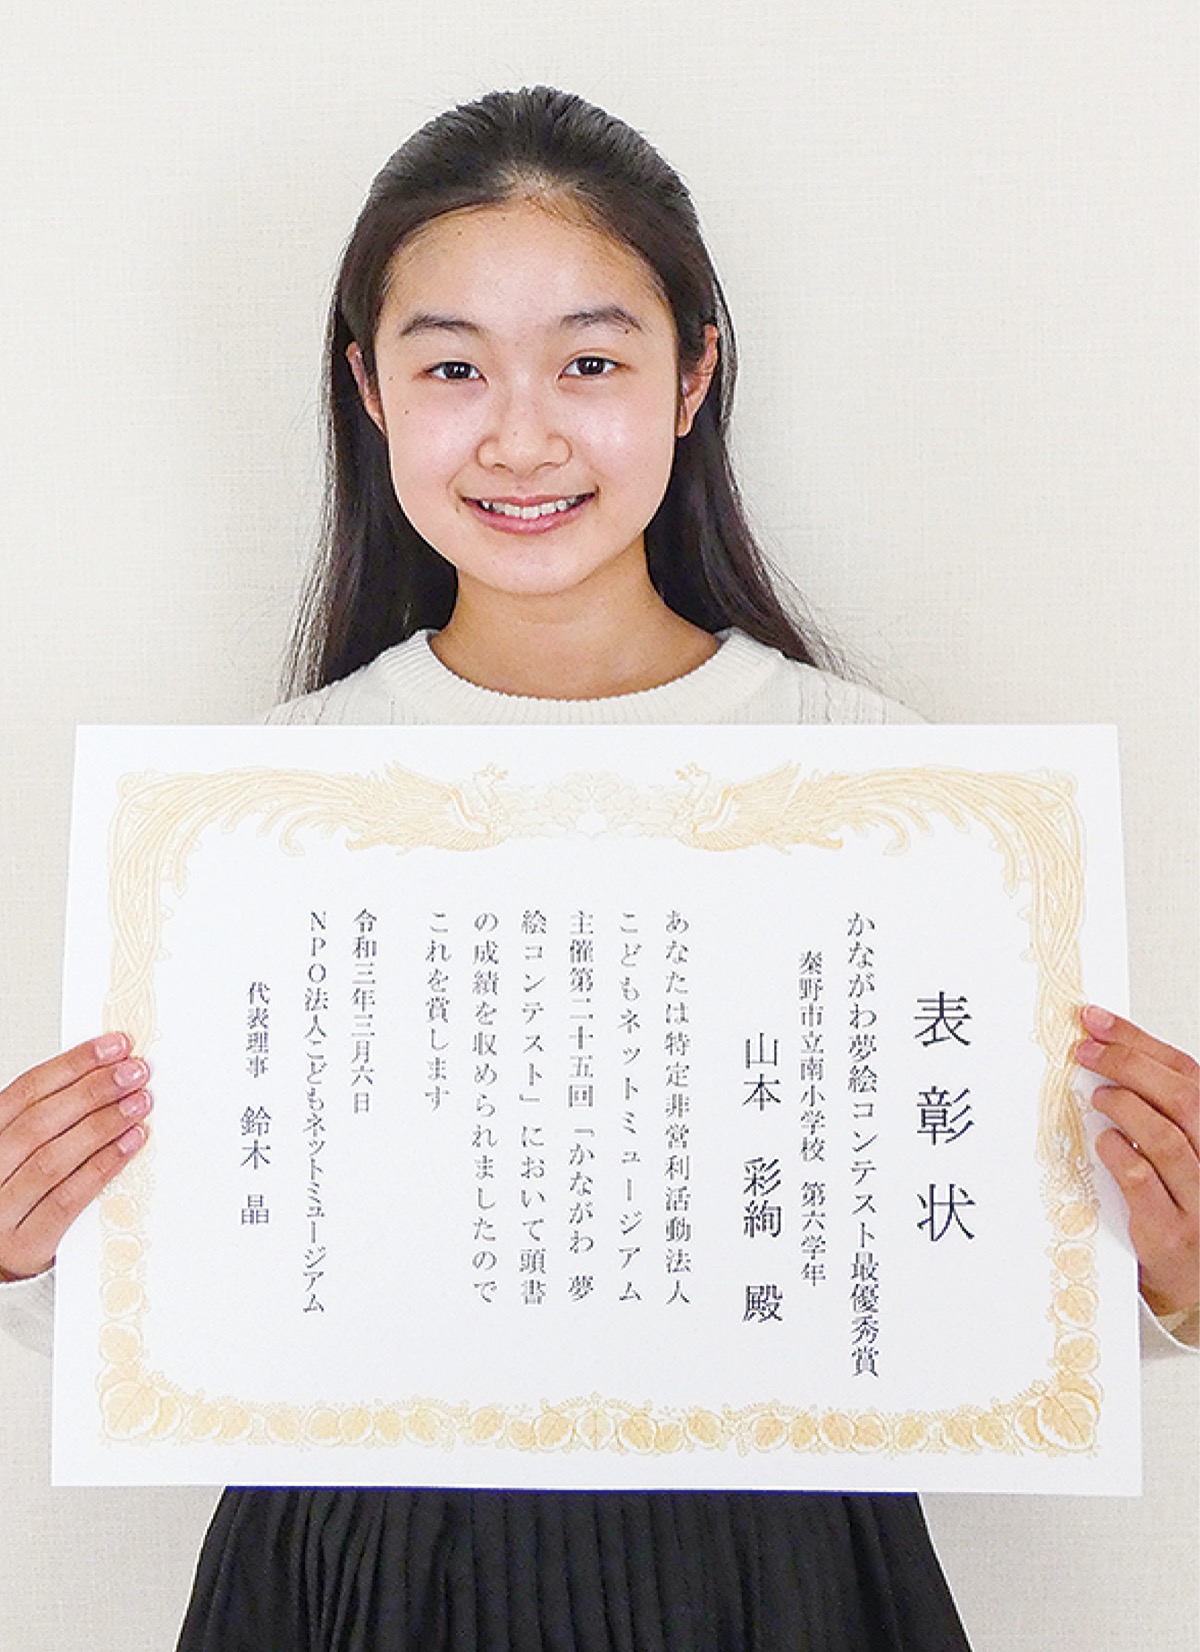 表彰状
かながわ夢絵コンテスト最優秀賞
秦野市立南小学校 第六学年
山本 彩絢 殿
あなたは特定非営利活動法人
こどもネットミュージアム
主催第二十五回「かながわ 夢
絵コンテスト」において頭書
の成績を収められましたので
これを賞します
令和三年三月六日
NPO法人こどもネットミュージアム
代表理事 鈴木 晶